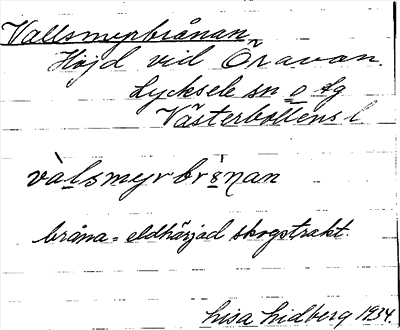 Vallsmyrbrånan
Höjd vid Öravan.
Lycksele sn o lg
Västerbottens l
vàlsmyrbrånan
bråna = eldhärjad skogstrakt.
Lisa Lidberg 1934.